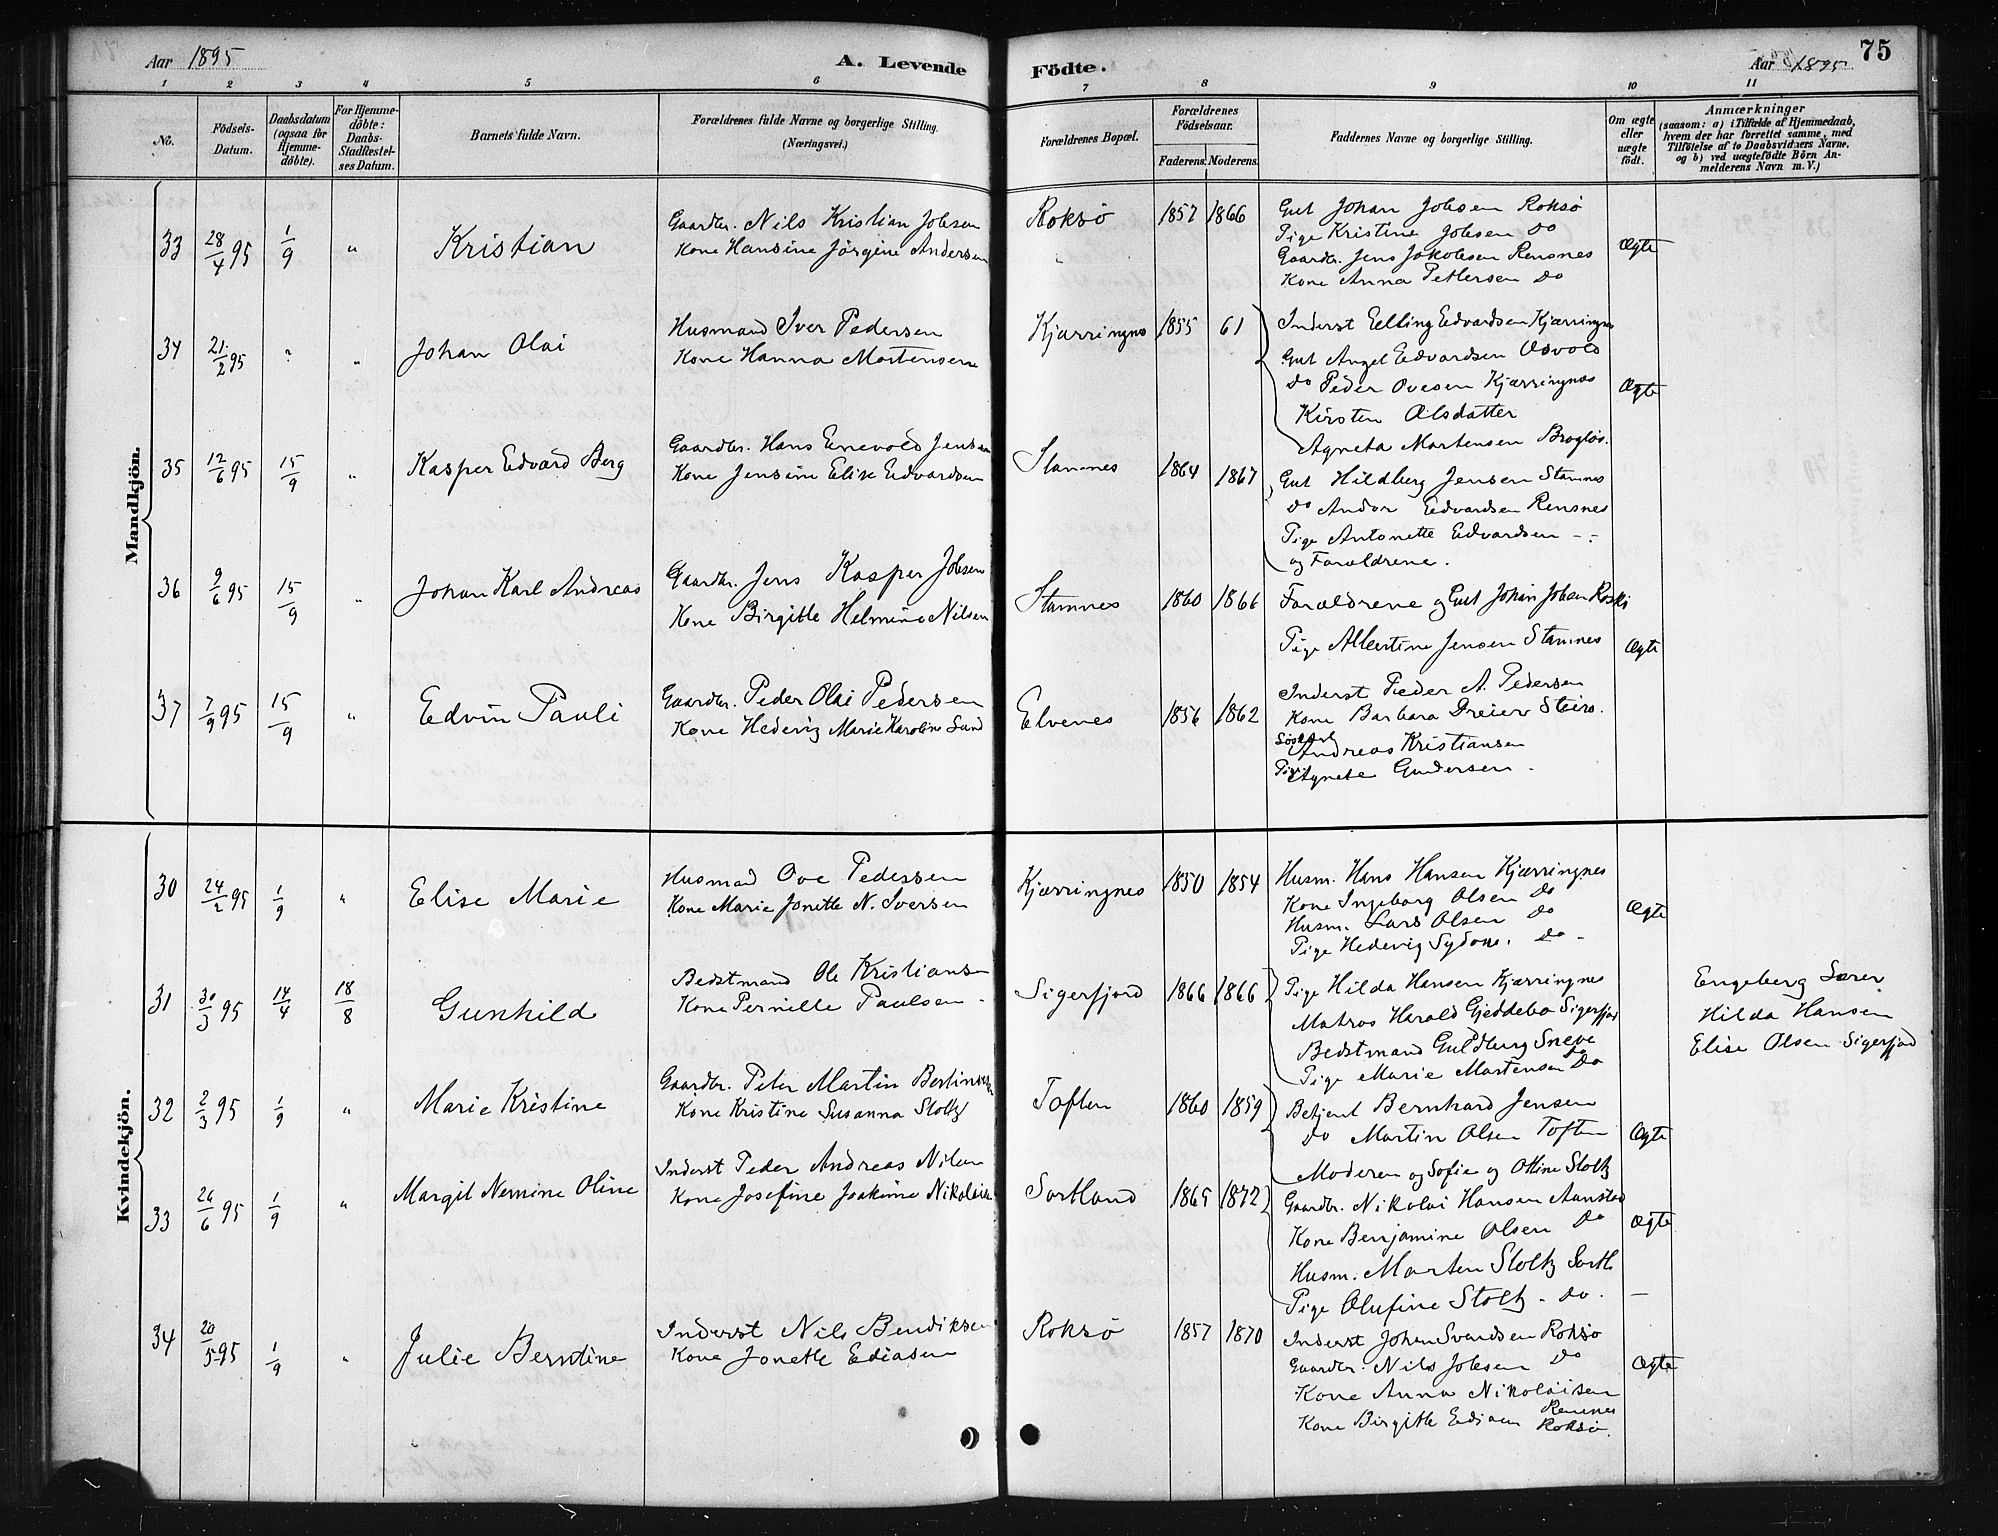 Aar 1895
A. Levende
Födte.
Aar 1895
75
1 2 3 4 5 6 7 8 9 10 11
No.
Födsels-Datum.
Daabsdatum (ogsaa for Hjemme-döbte).
For Hjemme-döbte: Daabs-Stadfæstel-ses Datum.
Barnets fulde Navn.
Forældrenes fulde Navne og borgerlige Stilling. (Næringsvei.)
Forældrenes Bopæl.
Forældrenes Födselsaar.
Faderens. Moderens.
Faddernes Navne og borgerlige Stilling.
Om ægte eller uægte födt.
Anmærkninger
(saasom: a) i Tilfælde af Hjemmedaab,
hvem der har forrettet samme, med
Tilföielse af to Daabsvidners Navne,
og b) ved uægtefödte Börn An-
melderens Navn m. V.)
Mandkjön.
33 28/4 95 1/9 " Kristian
Gaardbr. Nils Kristian Jobsen
Kone Hansine Jörgine Andersen
Roksö 1857 1866
Gut Johan Jobsen Roksö
Pige Kristine Jobsen Do
Gaardbr. Jens Jakobsen Rensnes
Kone Anna Pettersen Do
Ægte
34 21/2 95 " " Johan Olai
Husmand Iver Pedersen
Kone Hanna Mortensen
Kjærringnes 1855 61
Inderst Elling Edvardsen Kjærringnes
Gut Angel Edvardsen Osvold
Do Peder Ovesen Kjærringnes
Kirsten Olsdatter
Agneta Martensen
Ægte
35 12/6 95 15/9 " Kasper Edvard Berg
Gaardbr. Hans Enevold Jensen
Kone Jensine Elise Edvardsen
Stamnes 1864 1867
Gut Hildberg Jensen Stamnes
Do Andor Edvardsen Rensnes
Pige Antonette Edvardsen -:
og Forældrene.
36 9/6 95 15/9 " Johan Karl Andreas
Gaardbr. Jens Kasper Jobsen
Kone Birgitte Helmine Nilsen
Stamnes 1860 1866
Forældrene og Gut Johan Jobsen Roksö
Pige Albertine Jensen Stamnes
Ægte
37 7/9 95 15/9 " Edvin Pauli
Gaardbr. Peder Olai Pedersen
Kone Hedevig Marie Karoline Sand
Elvenes 1856 1862
Inderst Peder A. Pedersen
Kone Barbara Dreier Steiro.
Andreas Kristiansen
Pige Agnete Gundersen -
Kvindekjön.
30 24/2 95 1/9 " Elise Marie
Husmad Ove Pedersen
Kone Marie Jonette N. Iversen
Kjærringnes 1850 1854
Husm. Hans Hansen Kjærringnes
Kone Ingeborg Olsen Do
Husm. Lars Olsen Do
Pige Hedevig Sydone. Do -
Ægte
31 30/3 95 14/4 18/8 Gunhild
Bedstmand Ole Kristiansen
Kone Pernille Paulsen -
Sigerfjord 1866 1866
Pige Hilda Hansen Kjærringnes
Matros Harald Gjeddebo Sigerfjord
Bedstmand Guldberg Sneve Do
Pige Marie Martensen Do
Engeberg Sörer
Hilda Hansen
Elise Olsen Sigerfjord
32 2/3 95 1/9 " Marie Kristine
Gaardbr. Peter Martin Bertinsen
Kone Kristine Susanna Stoltz
Toften 1860 1859
Betjent Bernhard Jensen
Do Martin Olsen Toften
Moderen og Sofie og Oline Stoltz
Ægte
33 26/6 95 1/9 " Margit Nemine Oline
Inderst Peder Andreas Nilsen
Kone Josefine Joakime Nikolaisen
Sortland 1865 1872
Gaardbr. Nikolai Hansen Aanstad
Kone Benjamine Olsen Do
Husm. Marten Stoltz Sortl
Pige Olufine Stoltz - Do. -
Ægte
34 20/5 95 1/9 " Julie Berntine
Inderst Nils Bendiksen
Kone Jonette Ediasen
Roksö 1857 1870
Inderst Johan Svendsen Roksö
Gaardbr. Nils Jobsen Do
Kone Anna Nikolaisen Rennes
Kone Birgitte Ediasen Roksö.
Ægte